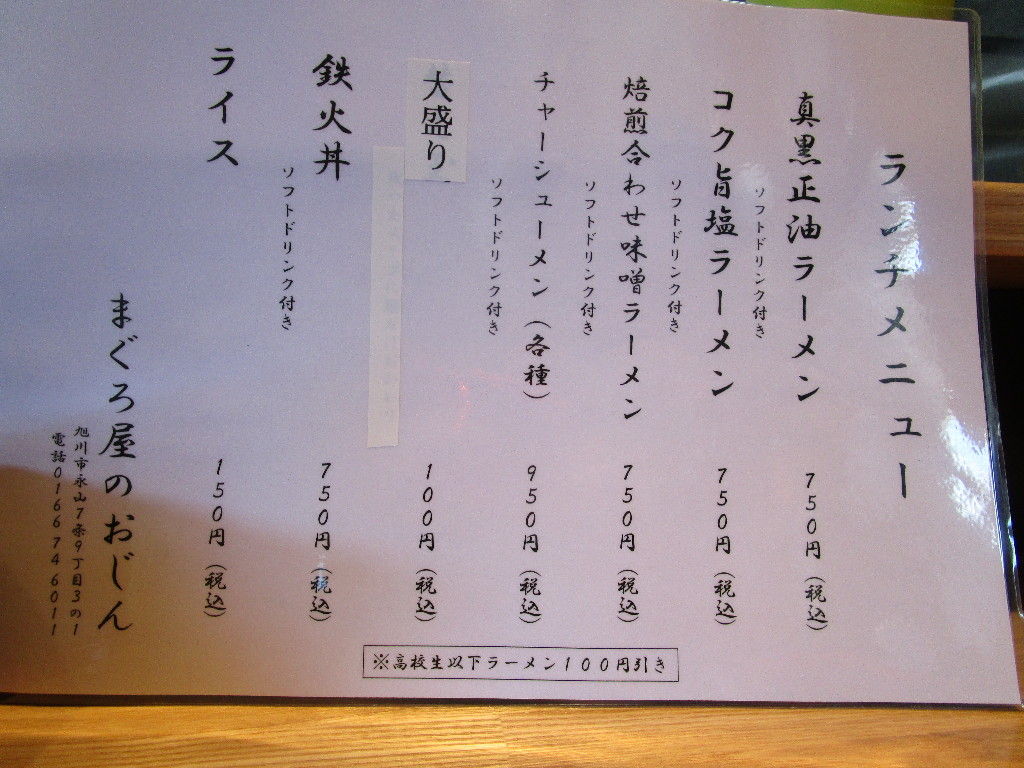 ランチメニュー
真黒正油ラーメン 750円(税込)
ソフトドリンク付き
コク旨塩ラーメン 750円(税込)
ソフトドリンク付き
焙煎合わせ味噌ラーメン 750円(税込)
ソフトドリンク付き
チャーシューメン(各種) 950円(税込)
ソフトドリンク付き
大盛り 100円(税込)
鉄火丼 750円(税込)
ソフトドリンク付き
ライス 150円(税込)
まぐろ屋のおじん
旭川市永山7条9丁目3の1
電話0166746011
※高校生以下ラーメン100円引き